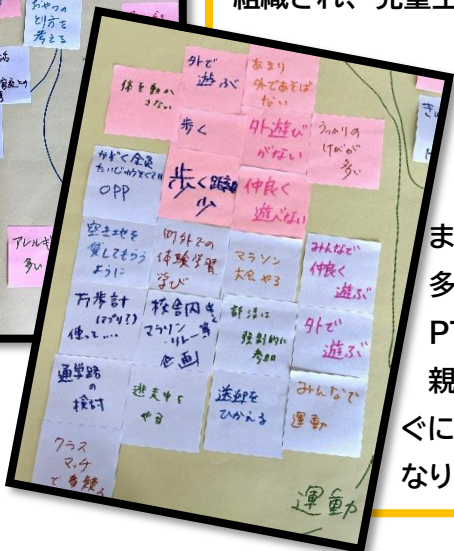 組織され、児童生
おやつの
とり方を
考える
アレルギ
多い
外で
遊ぶ
あまり
外であそば
ない
体を動か
さない
歩く
外遊び
がない
うっかりの
けがが
多い
かぞく全員
OPP
歩く
少
仲良く
遊べない
空き地を
貸してもらう
ように
町外での
体験学習
学び
マラソン
大会やる
みんなで
仲良く
遊ぶ
万歩計
使って…
校舎内
マラソン
リレー
企画
部活は
強制的に
参加
外で
遊ぶ
通学路
の
検討
逃走中を
やる
送迎を
ひかえる
みんなで
運動
クラス
マッチ
で
運動
ま
多
PT
親
ぐに
なり